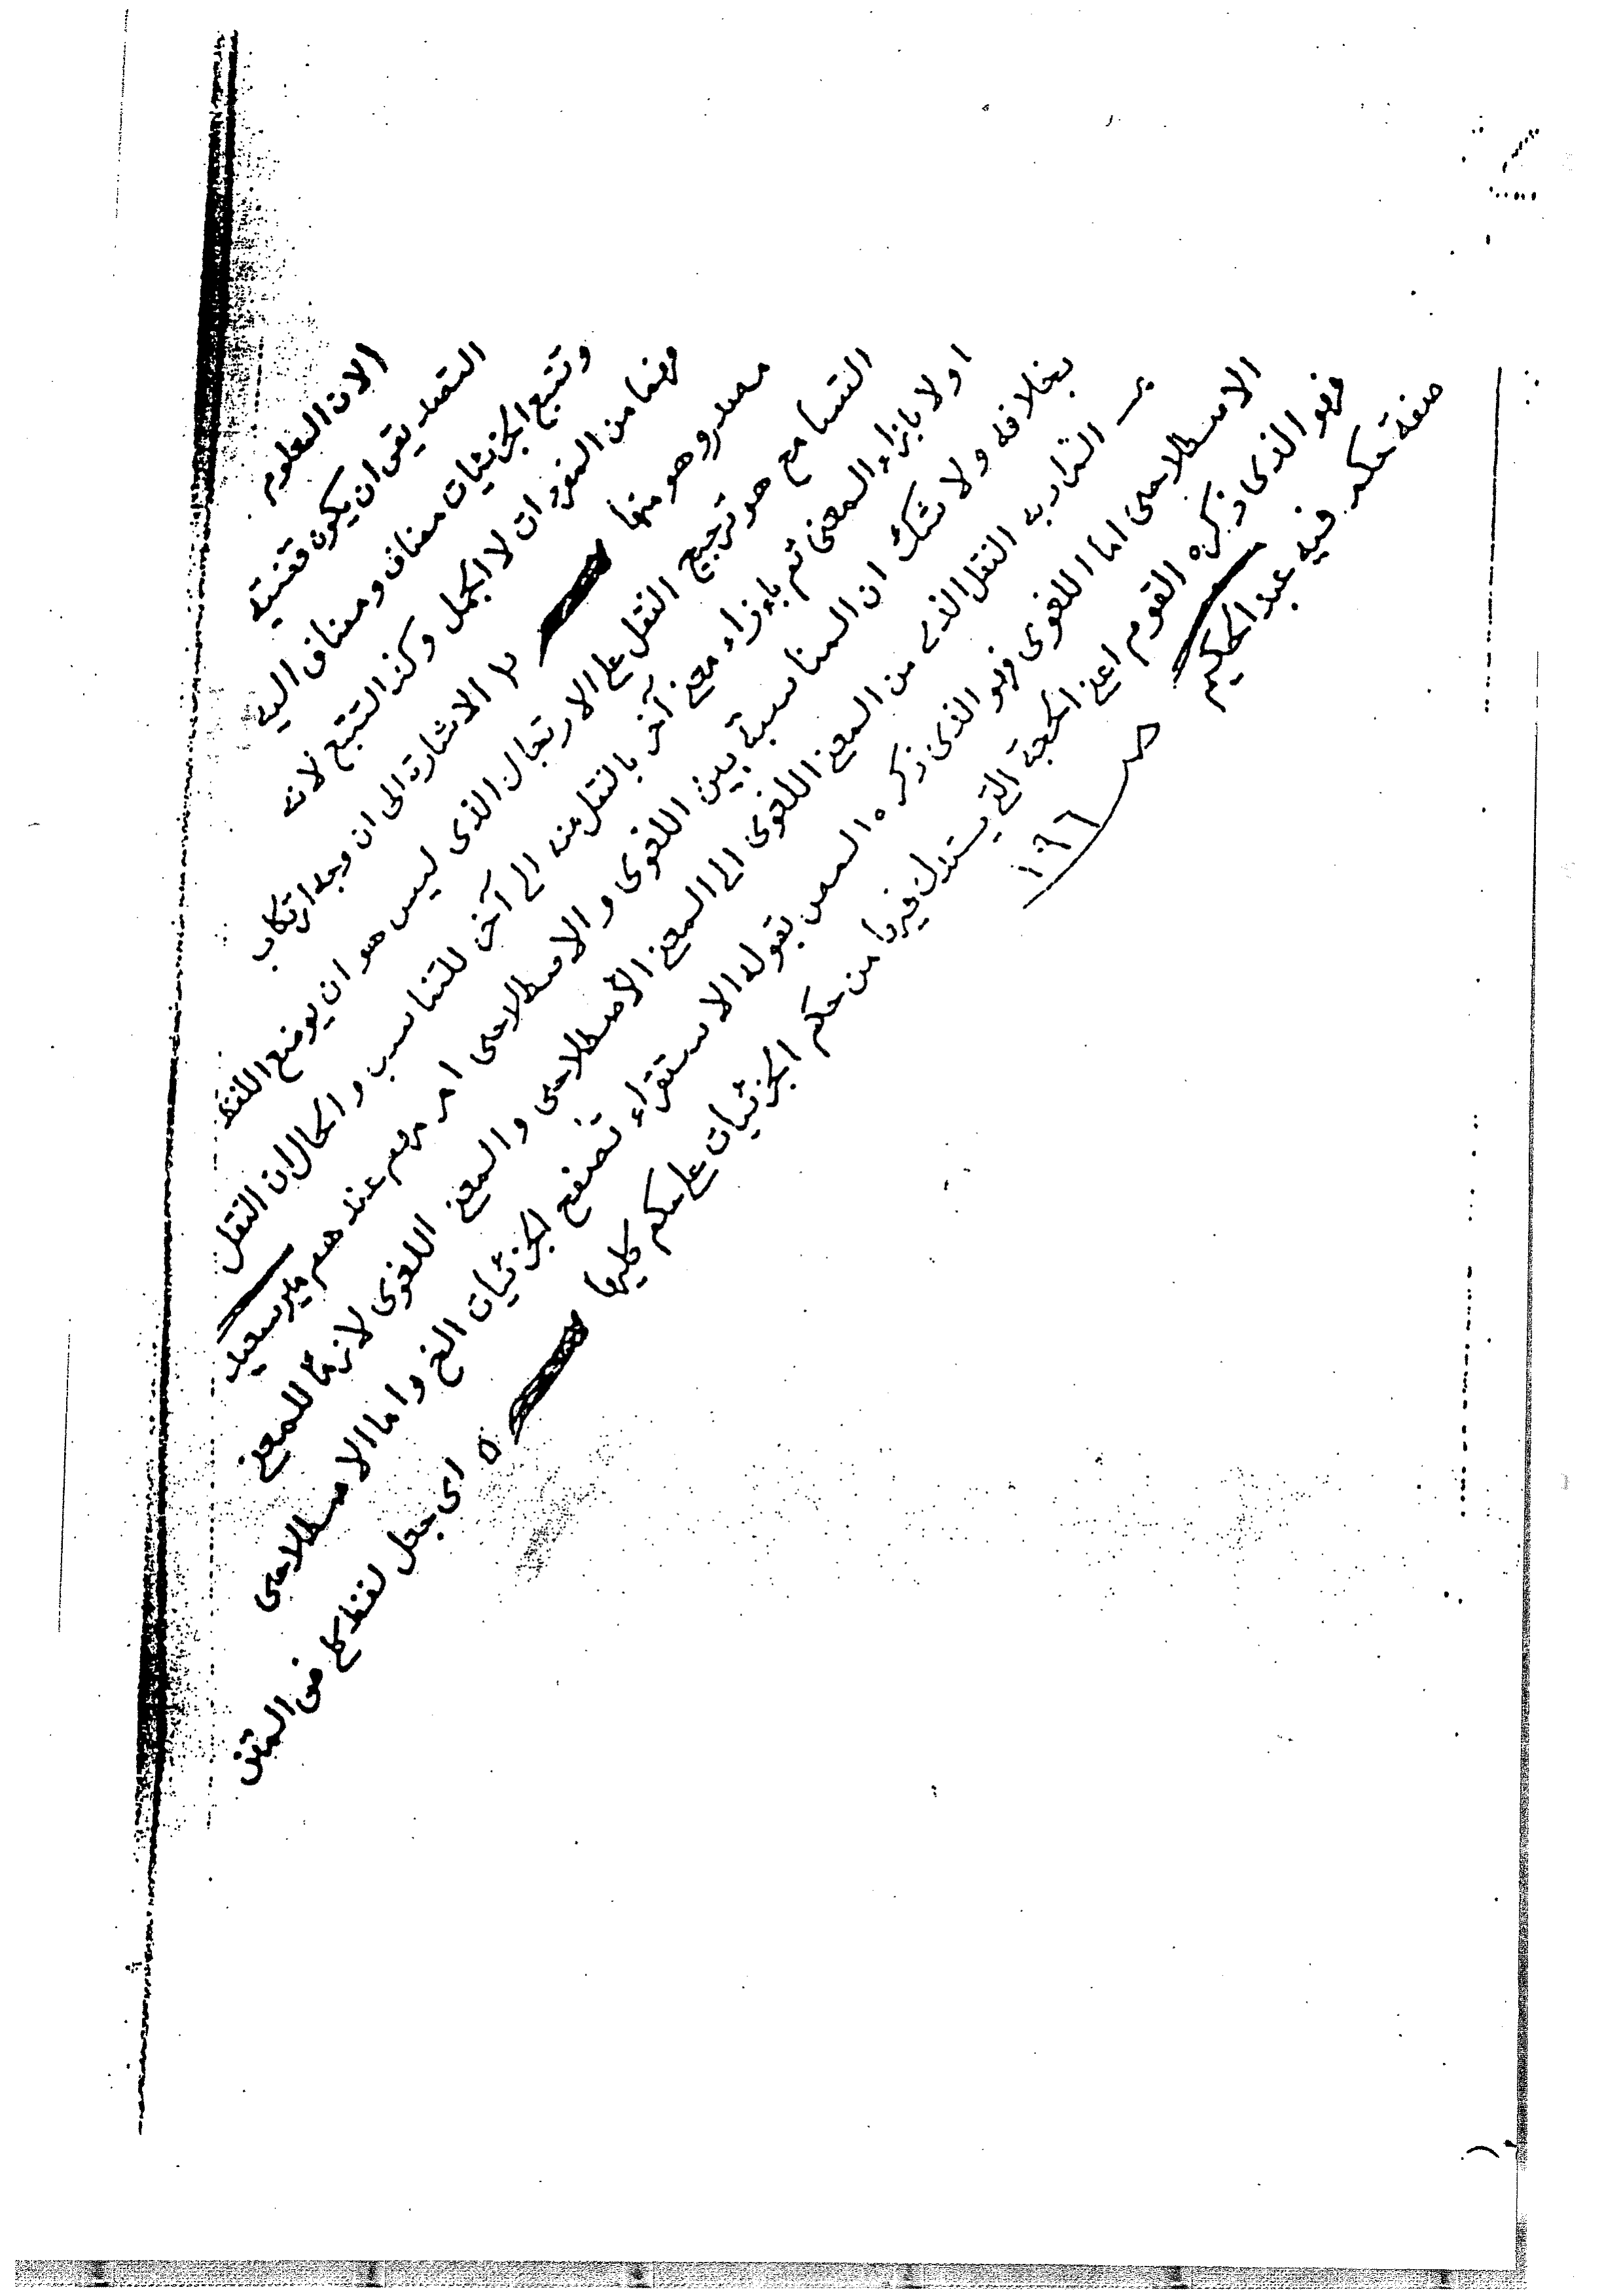 الان المعلوم
التصديقى ان يكون قضيته
وتتبع الجزئيات مضاف ومضاف اليه
فهما من المفردات لا الجمل وكذا التتبع لانه
مصدر وهو منها
٣ الاشارة الى ان وجه ارتكاب
التسامح هو ترجيح النقل على الارتجال الذى ليس هو ان يوضع اللفظ
اولا بازاء المعنى ثم بازاء معنى آخر بالنقل منه الى آخر للتناسب والحال ان النقل
بخلافه ولا شك ان المناسبة بين اللغوى والاصطلاحى امر مهم عندهم مير سعيد
النقل الذى من المعنى اللغوى الى المعنى الاصطلاحى والمعنى اللغوى لازما للمعنى
الاصطلاحى اما اللغوى فهو الذى ذكره المص بقوله الاستقراء تصفح الجزئيات الخ واما الاصطلاحى
فهو الذى ذكره القوم اعنى الحجة التى يستدل فيها من حكم الجزئيات على حكم كليها
٥ اى جعل لفظ كلى فى المتن
صفة حكم فيه عبد الحكيم
صـ ١٩٦